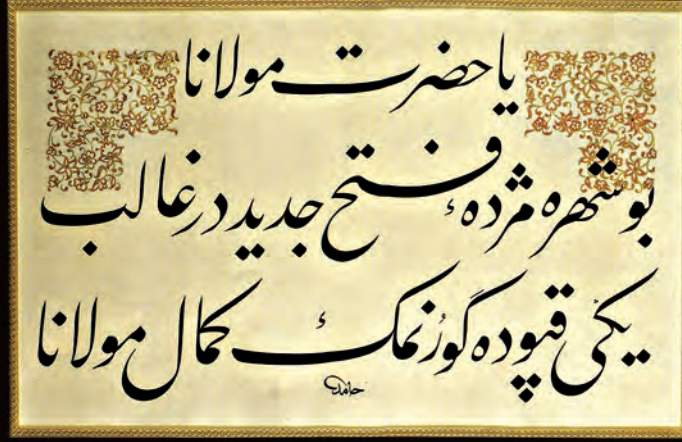 یا حضرت مولانا
بو شهره مژدهٔ فتح جدیددر غالب
یكی قپوده گورُنمك كمال مولانا
حامد